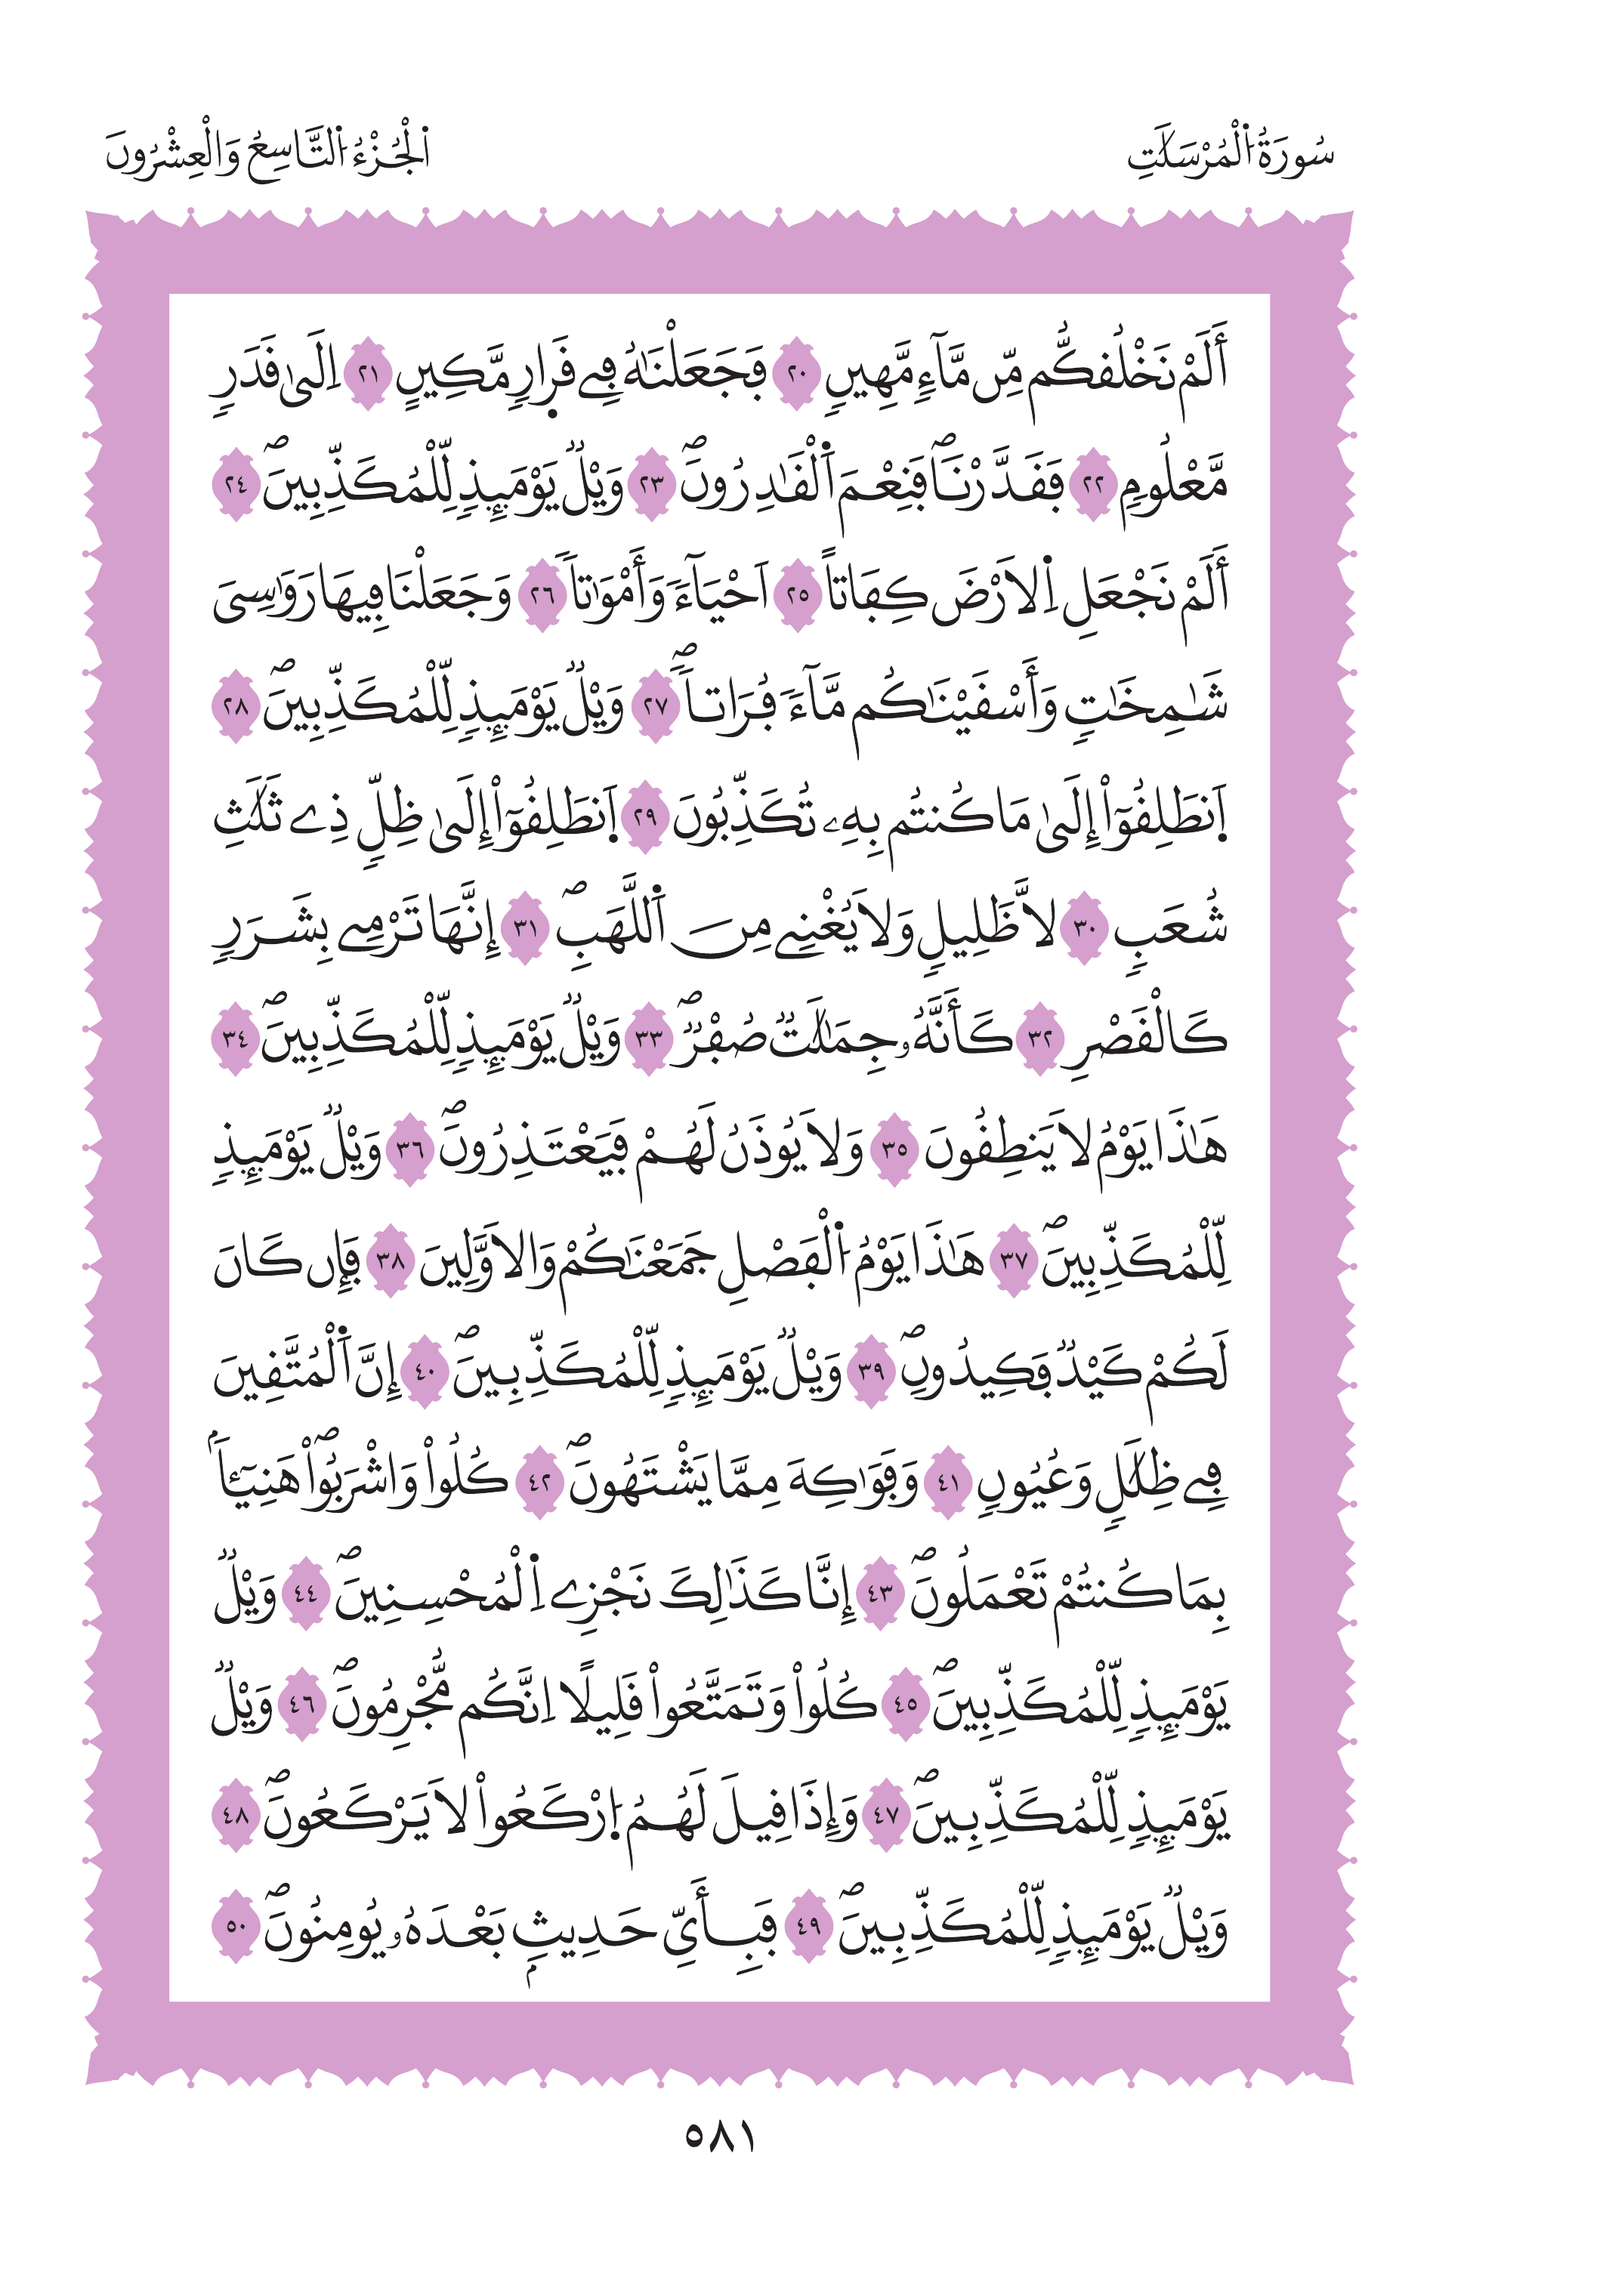 سُورَةُ اُ۬لْمُرْسَلَٰتِ
اَ۬لْجُزْءُ اُ۬لتَّاسِعُ وَالْعِشْرُونَ
أَلَمْ نَخْلُقكُّم مِّن مَّآءٖ مَّهِينٖ ٢٠ فَجَعَلْنَٰهُ فِے قَرارٖ مَّكِينٍ ٢١ اِلَىٰ قَدَرٖ
مَّعْلُومٖ ٢٢ فَقَدَّرْنَاۖ فَنِعْمَ اَ۬لْقَٰدِرُونَۖ ٢٣ وَيْلٞ يَوْمَئِذٖ لِّلْمُكَذِّبِينَۖ ٢٤
أَلَمْ نَجْعَلِ اِ۬لَارْضَ كِفَاتاً ٢٥ اَحْيَآءٗ وَأَمْوَٰتاٗ ٢٦ وَجَعَلْنَا فِيهَا رَوَٰسِيَ
شَٰمِخَٰتٖ وَأَسْقَيْنَٰكُم مَّآءٗ فُرَاتاٗۖ ٢٧ وَيْلٞ يَوْمَئِذٖ لِّلْمُكَذِّبِينَۖ ٢٨
اَ۪نطَلِقُوٓاْ إِلَىٰ مَا كُنتُم بِهِۦ تُكَذِّبُونَ ٢٩ اَ۪نطَلِقُوٓاْ إِلَىٰ ظِلّٖ ذِے ثَلَٰثِ
شُعَبٖ ٣٠ لَّا ظَلِيلٖ وَلَا يُغْنِے مِنَ اَ۬للَّهَبِۖ ٣١ إِنَّهَا تَرْمِے بِشَرَرٖ
كَالْقَصْرِ ٣٢ كَأَنَّهُۥ جِمَٰلَٰتٞ صُفْرٞۖ ٣٣ وَيْلٞ يَوْمَئِذٖ لِّلْمُكَذِّبِينَۖ ٣٤
هَٰذَا يَوْمُ لَا يَنطِقُونَ ٣٥ وَلَا يُوذَنُ لَهُمْ فَيَعْتَذِرُونَۖ ٣٦ وَيْلٞ يَوْمَئِذٖ
لِّلْمُكَذِّبِينَۖ ٣٧ هَٰذَا يَوْمُ اُ۬لْفَصْلِ جَمَعْنَٰكُمْ وَالَاوَّلِينَ ٣٨ فَإِن كَانَ
لَكُمْ كَيْدٞ فَكِيدُونِۖ ٣٩ وَيْلٞ يَوْمَئِذٖ لِّلْمُكَذِّبِينَۖ ٤٠ إِنَّ اَ۬لْمُتَّقِينَ
فِے ظِلَٰلٖ وَعُيُونٖ ٤١ وَفَوَٰكِهَ مِمَّا يَشْتَهُونَۖ ٤٢ كُلُواْ وَاشْرَبُواْۖ هَنِيٓـٔاَۢ
بِمَا كُنتُمْ تَعْمَلُونَۖ ٤٣ إِنَّا كَذَٰلِكَ نَجْزِے اِ۬لْمُحْسِنِينَۖ ٤٤ وَيْلٞ
يَوْمَئِذٖ لِّلْمُكَذِّبِينَۖ ٤٥ كُلُواْ وَتَمَتَّعُواْ قَلِيلًا اِنَّكُم مُّجْرِمُونَۖ ٤٦ وَيْلٞ
يَوْمَئِذٖ لِّلْمُكَذِّبِينَۖ ٤٧ وَإِذَا قِيلَ لَهُمُ اُ۪رْكَعُواْ لَا يَرْكَعُونَۖ ٤٨
وَيْلٞ يَوْمَئِذٖ لِّلْمُكَذِّبِينَۖ ٤٩ فَبِأَيِّ حَدِيثِۢ بَعْدَهُۥ يُومِنُونَۖ ٥٠
٥٨١